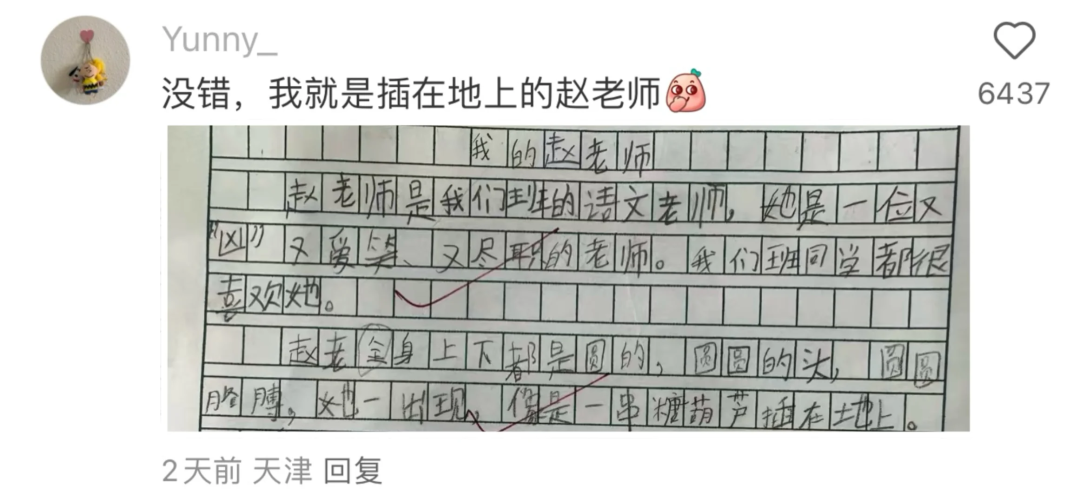 Yunny_
没错，我就是插在地上的赵老师
6437
我的赵老师
赵老师是我们班的语文老师，她是一位又
“凶”又爱笑、又尽职的老师。我们班同学都很
喜欢她。
赵老全身上下都是圆的，圆圆的头，圆圆
胳膊，她一出现，像是一串糖葫芦插在地上。
2天前 天津 回复